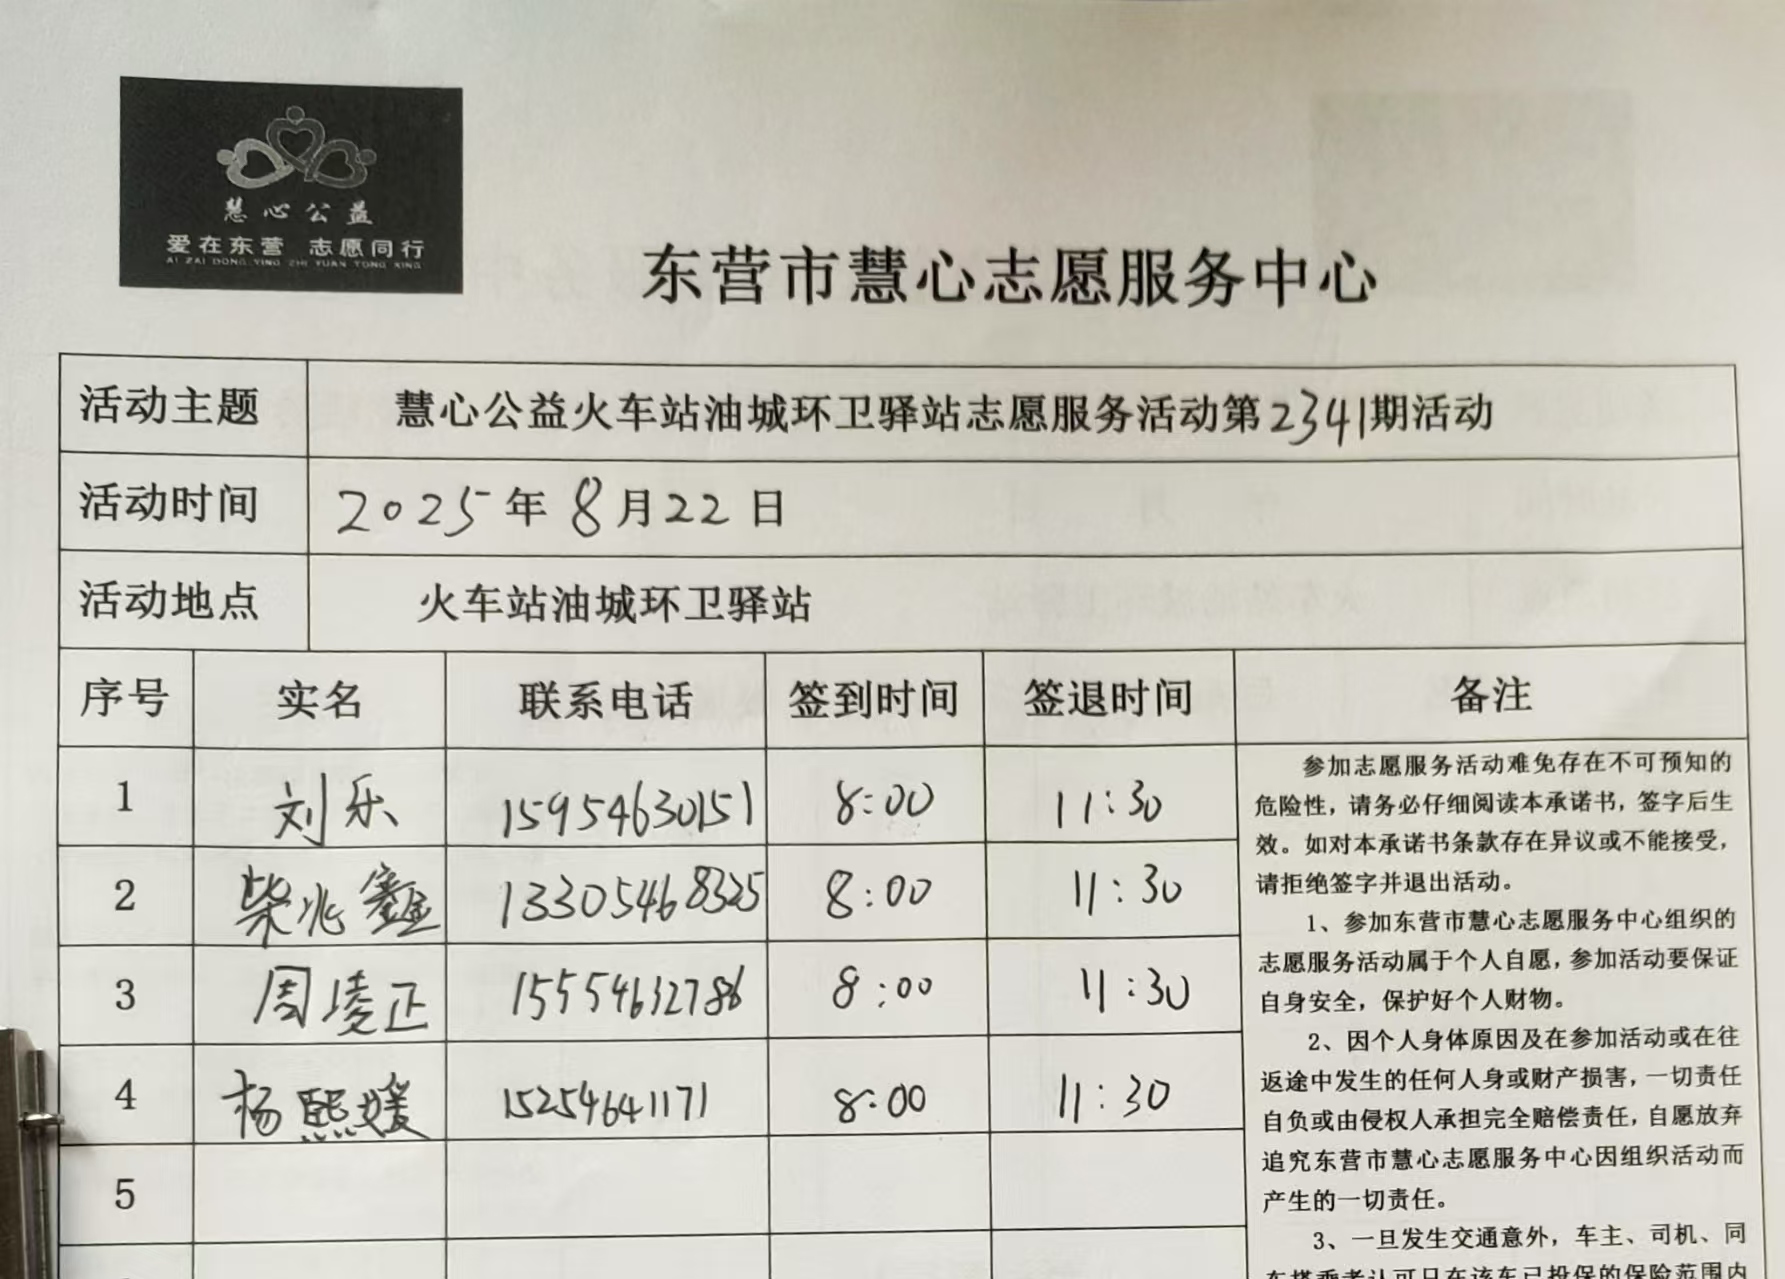 慧心公益
爱在东营 志愿同行
AI ZAI DONG YING ZHI YUAN TONG XING
东营市慧心志愿服务中心
活动主题 慧心公益火车站油城环卫驿站志愿服务活动第2341期活动
活动时间 2025年8月22日
活动地点 火车站油城环卫驿站
序号 实名 联系电话 签到时间 签退时间 备注
1 刘乐 15954630151 8:00 11:30
2 柴兆鑫 13305468325 8:00 11:30
3 周凌正 15554632786 8:00 11:30
4 杨熙媛 15254641171 8:00 11:30
5
参加志愿服务活动难免存在不可预知的
危险性，请务必仔细阅读本承诺书，签字后生
效。如对本承诺书条款存在异议或不能接受，
请拒绝签字并退出活动。
1、参加东营市慧心志愿服务中心组织的
志愿服务活动属于个人自愿，参加活动要保证
自身安全，保护好个人财物。
2、因个人身体原因及在参加活动或在往
返途中发生的任何人身或财产损害，一切责任
自负或由侵权人承担完全赔偿责任，自愿放弃
追究东营市慧心志愿服务中心因组织活动而
产生的一切责任。
3、一旦发生交通意外，车主、司机、同
车搭乘者认可只在该车已投保的保险范围内